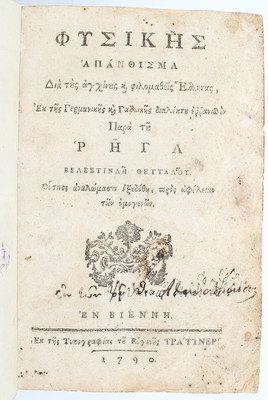 ΦΥΣΙΚΗΣ
ΑΠΑΝΘΙΣΜΑ
Διὰ τοὺς ἀγχίνους ϗ φιλομαθεῖς Ἕλληνας,
Ἐκ τῆς Γερμανικῆς ϗ Γαλλικῆς διαλέκτου ἐρανισθὲν
Παρὰ τοῦ
ΡΗΓΑ
ΒΕΛΕΣΤΙΝΛΗ ΘΕΤΤΑΛΟΥ.
Οὗτινος ἀναλώμασιν ἐξεδόθη, πρὸς ὠφέλειαν
τῶν ὁμογενῶν.
ἐκ τῶν
ΕΝ ΒΙΕΝΝΗ.
Ἐκ τῆς Τυπογραφίας τοῦ Εὐγενοῦς ΤΡΑΤΤΝΕΡ.
1790.